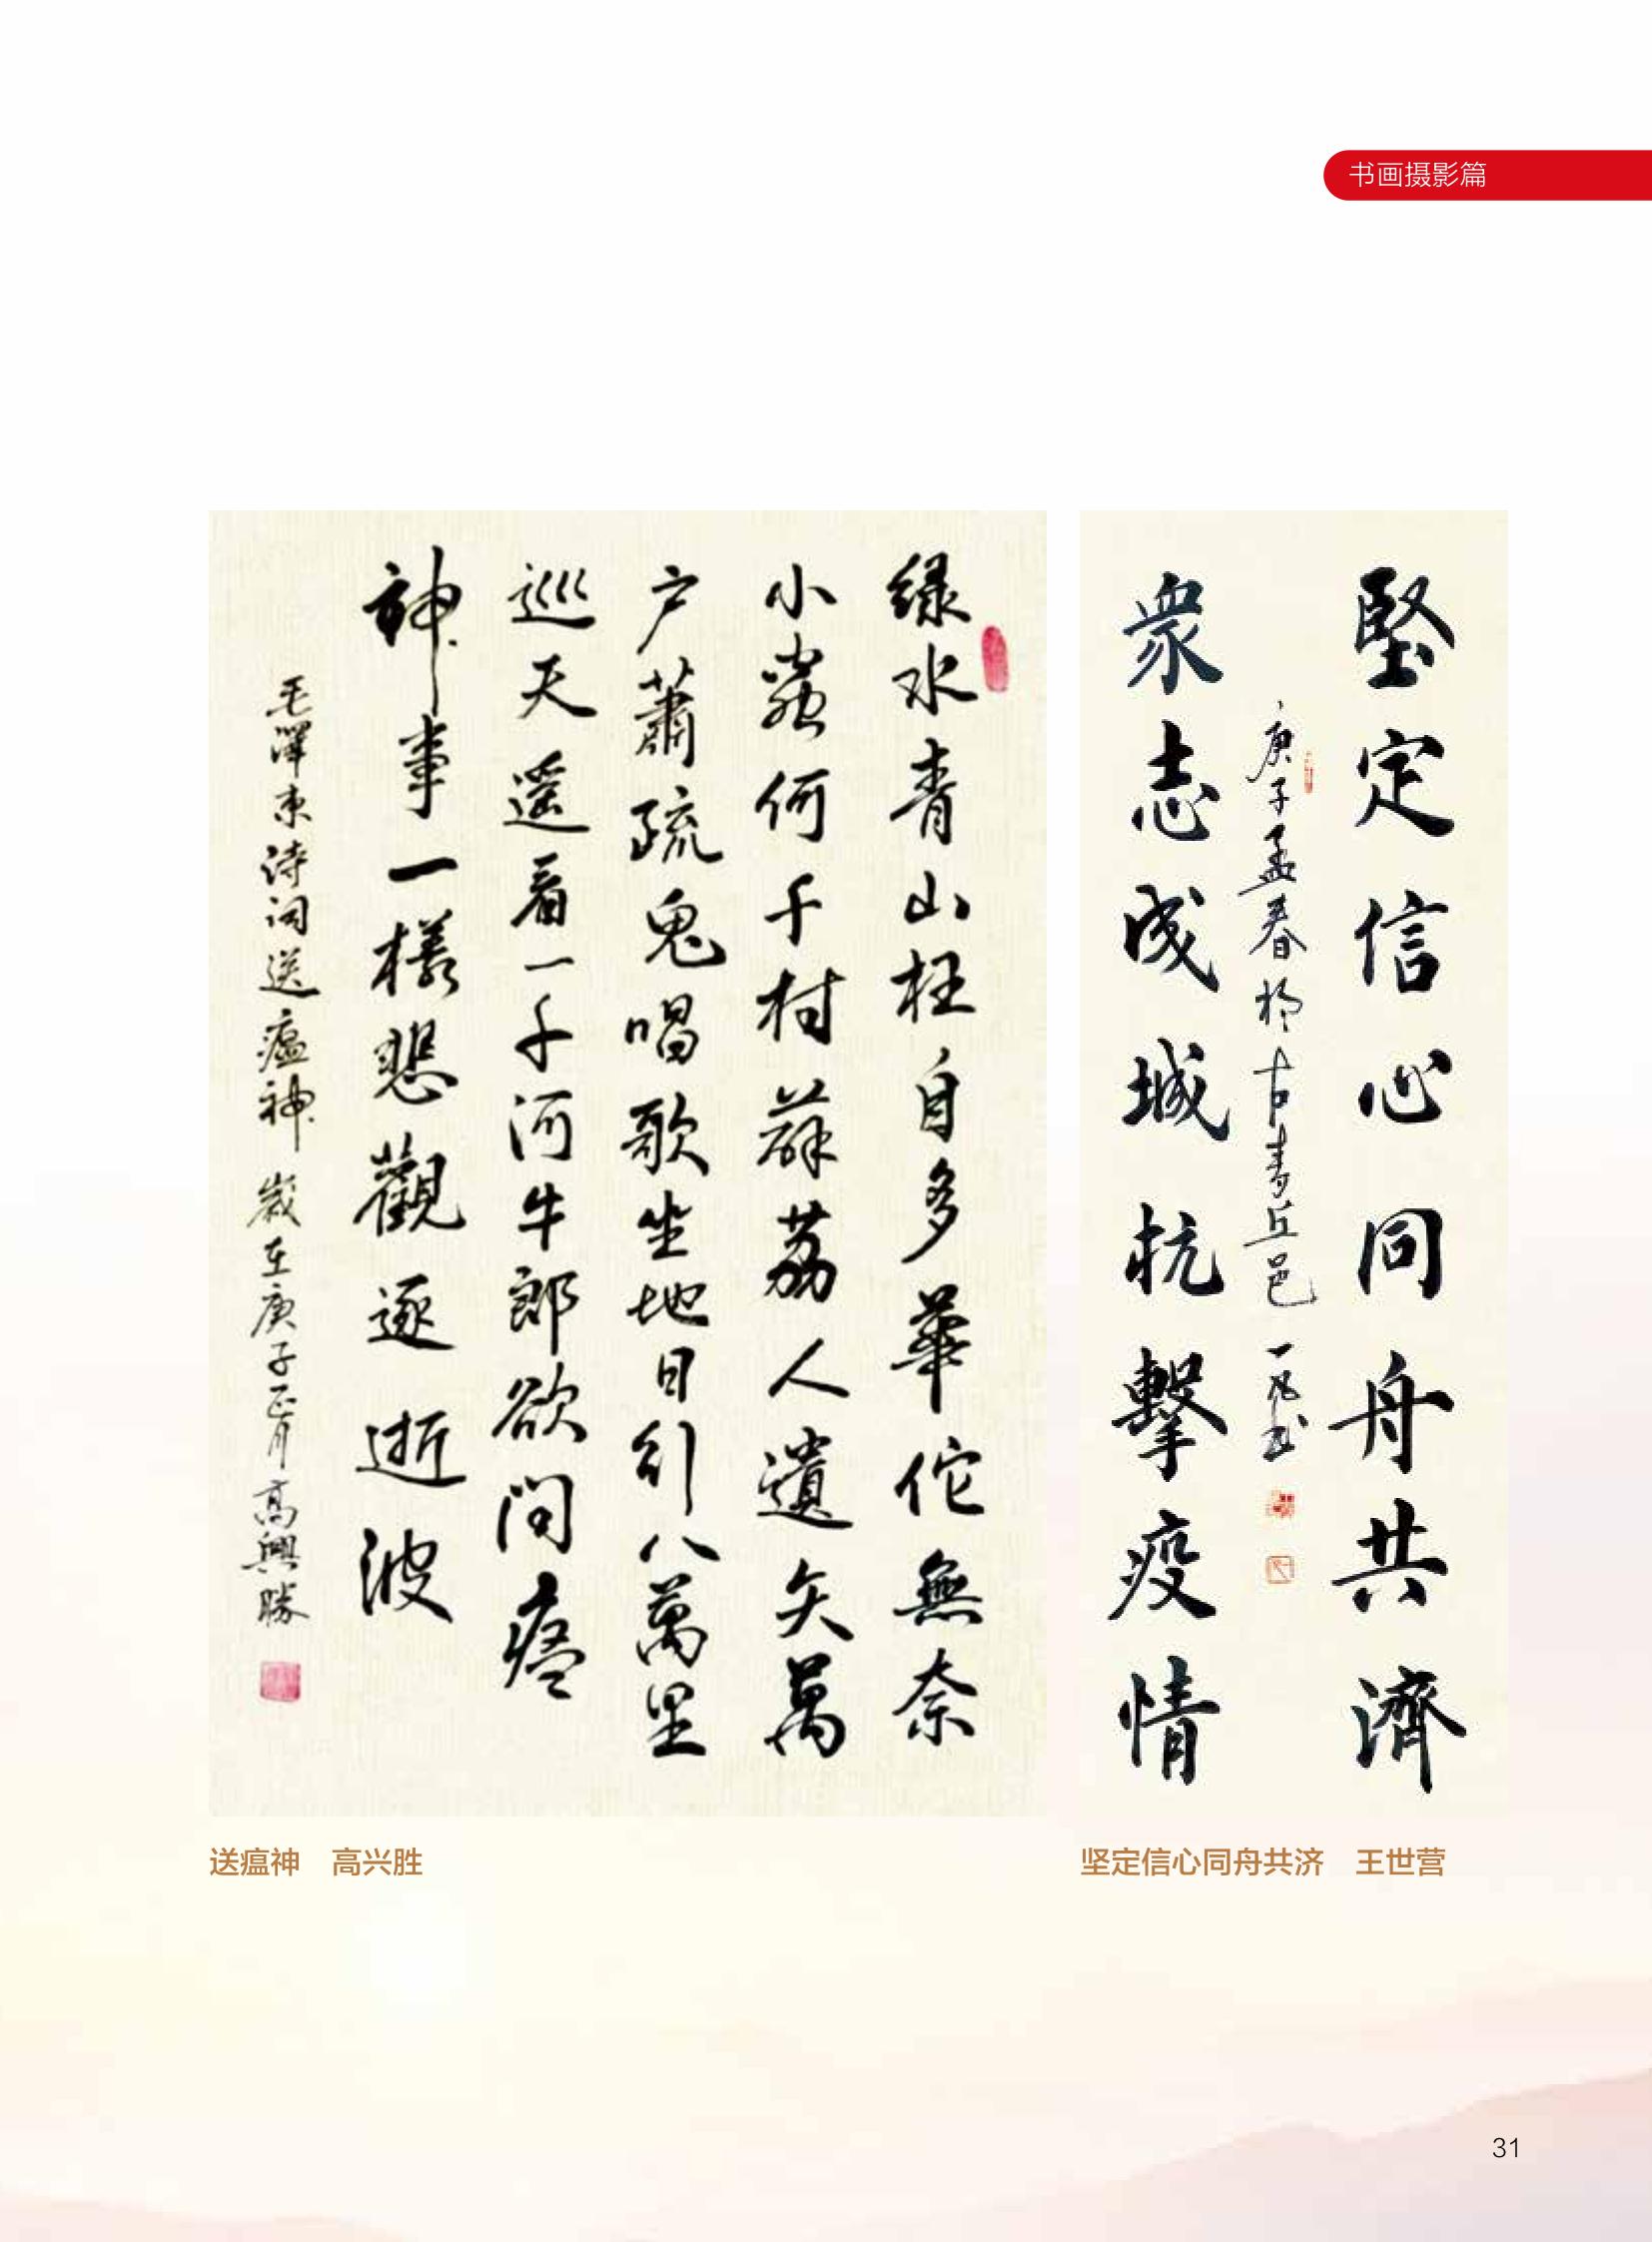 书画摄影篇
堅定信心同舟共濟
庚子孟春於古青丘邑 一凡书
衆志成城抗擊疫情
绿水青山枉自多華佗無奈
小蟲何千村薜荔人遺矢萬
户蕭疏鬼唱歌坐地日引八萬里
巡天遥看一千河牛郎欲问瘟
神事一樣悲觀逐逝波
毛澤東诗词送瘟神 歲在庚子正月 高興勝
送瘟神 高兴胜
坚定信心同舟共济 王世营
31